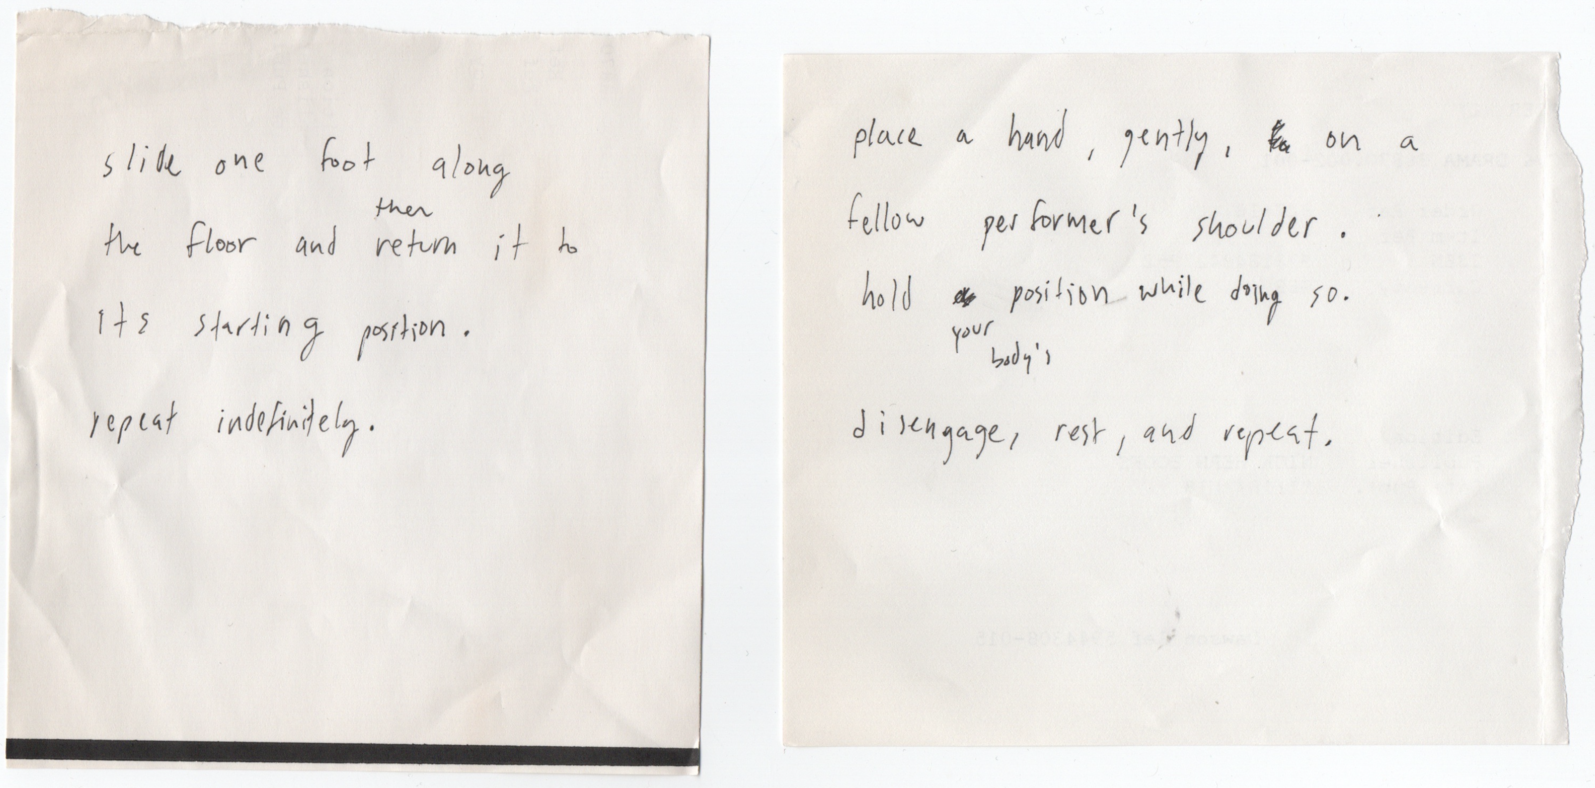 slide one foot along
then
the floor and return it to
its starting position.
repeat indefinitely.
place a hand, gently, on a
fellow performer's shoulder.
hold position while doing so.
your
body's
disengage, rest, and repeat.